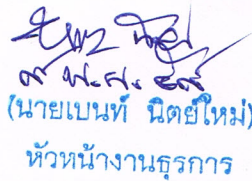 ๙ พ.ค. ๕๙
(นายเบนท์ นิตย์ใหม่)
หัวหน้างานธุรการ